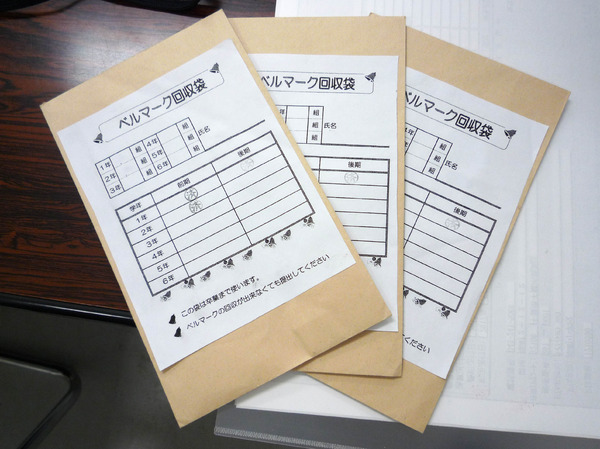 ベルマーク回収袋
1年 組 4年 組
2年 組 5年 組 氏名
3年 組 6年 組
学年 前期 後期
1年 済
2年 済
3年
4年
5年
6年
この袋は卒業まで使います。
ベルマークの回収が出来なくても提出してください
ベルマーク回収袋
年 組
年 組 氏名
年 組
後期
ベルマーク回収袋
組
組 氏名
組
後期
ください